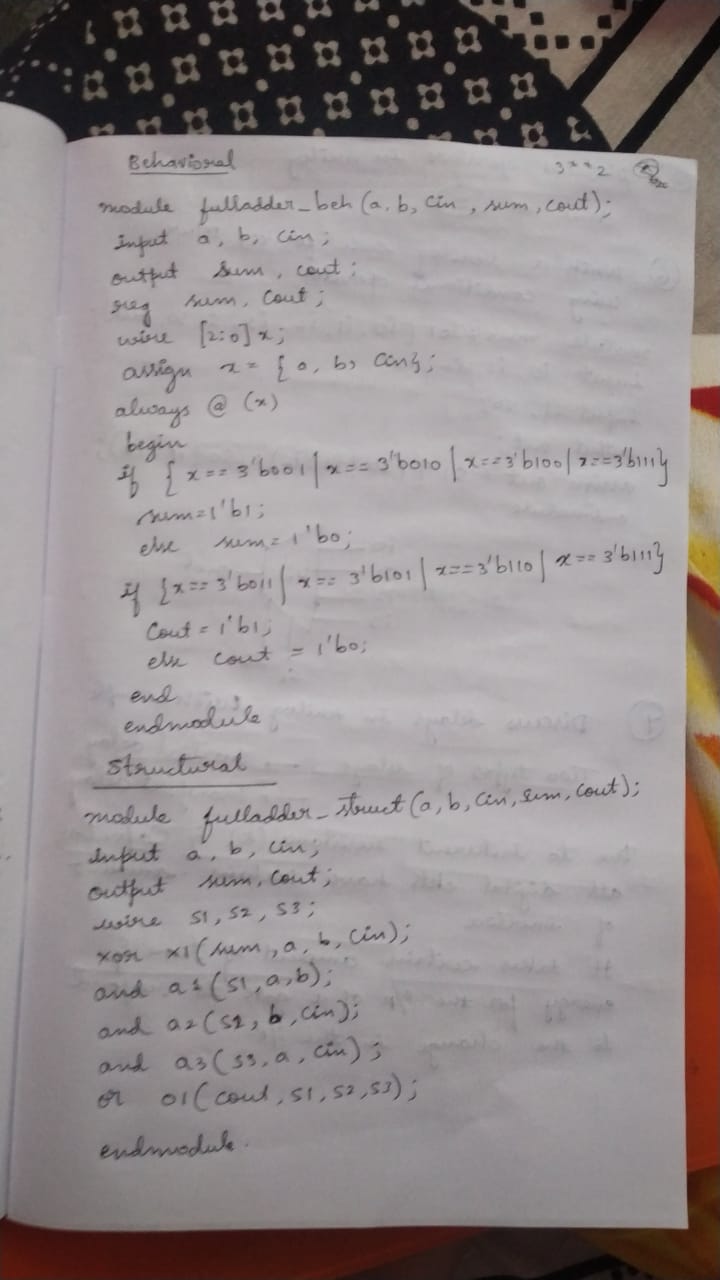 Behavioral
3**2
module fulladder_beh (a, b, cin, sum, cout);
input a, b, cin;
output sum, cout;
reg sum, cout;
wire [2:0] x;
assign x = {a, b, cin};
always @ (x)
begin
if {x == 3'b001 | x == 3'b010 | x == 3'b100 | x == 3'b111}
sum = 1'b1;
else sum = 1'b0;
if {x == 3'b011 | x == 3'b101 | x == 3'b110 | x == 3'b111}
Cout = 1'b1;
else cout = 1'b0;
end
endmodule
Structural
module fulladder_struct (a, b, cin, sum, cout);
input a, b, cin;
output sum, cout;
wire s1, s2, s3;
xor x1 (sum, a, b, cin);
and a1 (s1, a, b);
and a2 (s2, b, cin);
and a3 (s3, a, cin);
or o1 (cout, s1, s2, s3);
endmodule.